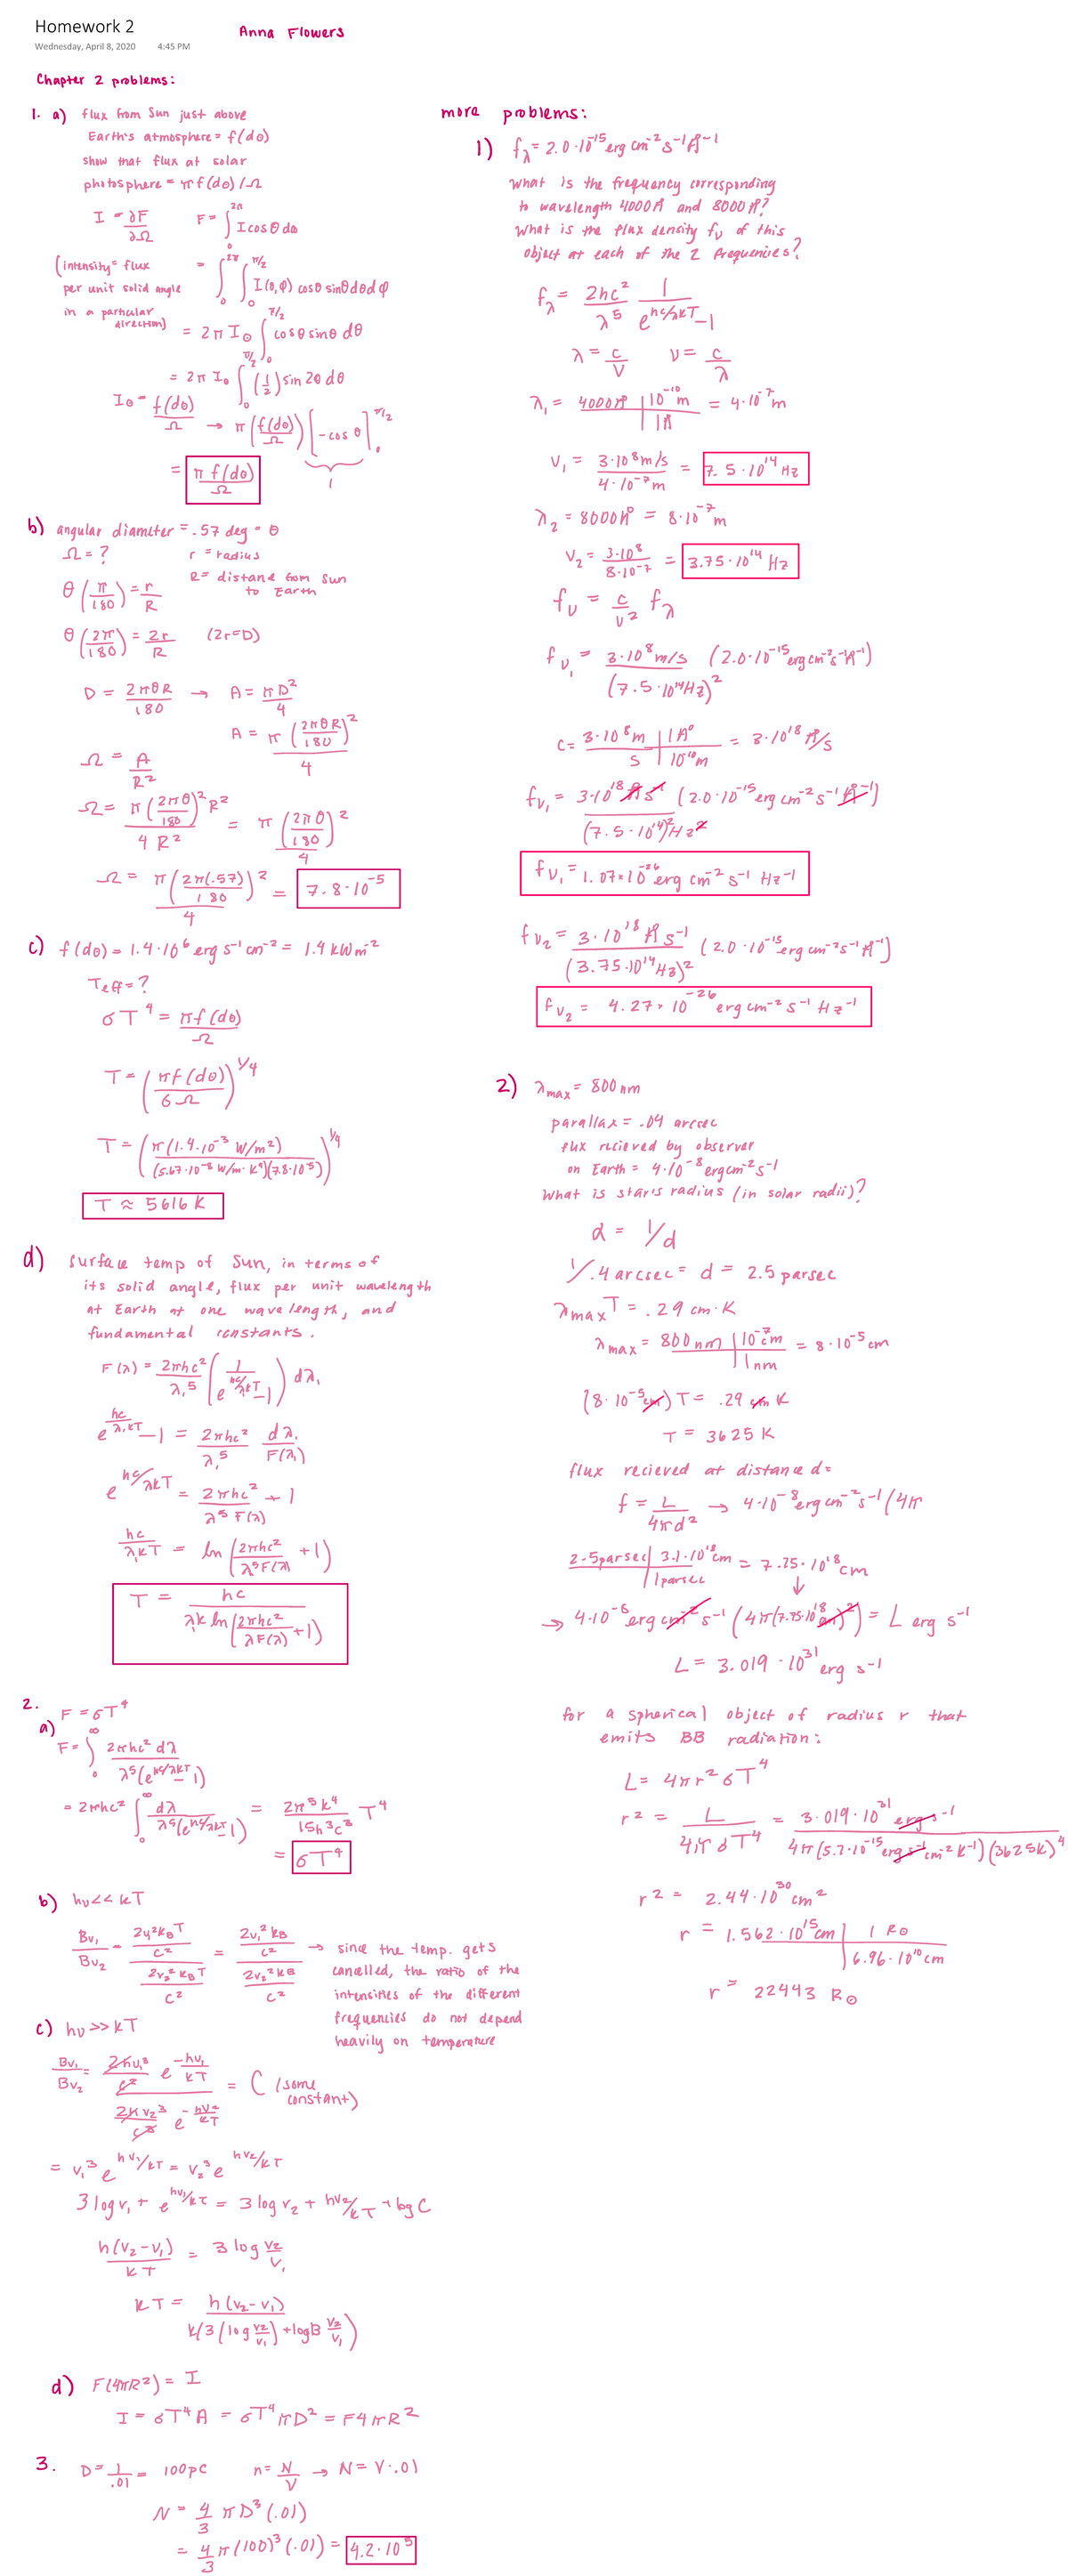 Homework 2
Anna Flowers
Wednesday, April 8, 2020 4:45 PM
Chapter 2 problems:
1. a) flux from Sun just above
Earth's atmosphere = f(d⊙)
show that flux at solar
photosphere = πf(d⊙)/Ω
I = ∂F/∂Ω F = ∫₀^2π I cosθ dΩ
(intensity = flux
per unit solid angle
in a particular
direction)
= ∫₀^2π ∫₀^π/2 I(θ,φ) cosθ sinθ dθ dφ
= 2π I⊙ ∫₀^π/2 cosθ sinθ dθ
= 2π I⊙ ∫₀^π/2 (1/2) sin 2θ dθ
I⊙ = f(d⊙)/Ω → π (f(d⊙)/Ω) [-cos θ]₀^π/2
1
= πf(d⊙)/Ω
b) angular diameter = .57 deg = θ
Ω = ? r = radius
R = distance from Sun
to Earth
θ(π/180) = r/R
θ(2π/180) = 2r/R (2r=D)
D = 2πθR/180 → A = πD²/4
A = π(2πθR/180)²/4
Ω = A/R²
Ω = π(2πθ/180)²R²/4R² = π(2πθ/180)²/4
Ω = π(2π(.57)/180)²/4 = 7.8·10⁻⁵
c) f(d⊙) = 1.4·10⁶ erg s⁻¹ cm⁻² = 1.4 kW m⁻²
Teff = ?
σT⁴ = πf(d⊙)/Ω
T = (πf(d⊙)/σΩ)^1/4
T = (π(1.4·10⁻³ W/m²)/(5.67·10⁻⁸ W/m·K⁴)(7.8·10⁻⁵))^1/4
T ≈ 5616 K
d) surface temp of Sun, in terms of
its solid angle, flux per unit wavelength
at Earth at one wavelength, and
fundamental constants.
F(λ) = 2πhc²/λ₁⁵ (1/(e^hc/λkT - 1)) dλ₁
e^hc/λ₁kT - 1 = 2πhc²/λ₁⁵ dλ₁/F(λ₁)
e^hc/λkT = 2πhc²/λ⁵F(λ) + 1
hc/λ₁kT = ln(2πhc²/λ⁵F(λ) + 1)
T = hc/λ₁k ln(2πhc²/λF(λ) + 1)
2. F = σT⁴
a) F = ∫₀^∞ 2πhc² dλ/λ⁵(e^hc/λkT - 1)
= 2πhc² ∫₀^∞ dλ/λ⁵(e^hc/λkT - 1) = 2π⁵k⁴/15h³c³ T⁴
= σT⁴
b) hν << kT
Bν₁/Bν₂ = (2ν₁²k_BT/c²)/(2ν₂²k_BT/c²) = (2ν₁²k_B/c²)/(2ν₂²k_B/c²) → since the temp. gets
cancelled, the ratio of the
intensities of the different
frequencies do not depend
heavily on temperature
c) hν >> kT
Bν₁/Bν₂ = (2hν₁³/c² e^-hν₁/kT)/(2hν₂³/c² e^-hν₂/kT) = C (some
constant)
= ν₁³ e^hν₁/kT = ν₂³ e^hν₂/kT
3 log ν₁ + e^hν₁/kT = 3 log ν₂ + hν₂/kT + log C
h(ν₂-ν₁)/kT = 3 log ν₂/ν₁
kT = h(ν₂-ν₁)/k(3(log ν₂/ν₁) + logB ν₂/ν₁)
d) F(4πR²) = I
I = σT⁴A = σT⁴πD² = F4πR²
3. D = 1/.01 = 100pc n = N/V → N = V·.01
N = 4/3 πD³(.01)
= 4/3 π(100)³(.01) = 4.2·10⁵
more problems:
1) f_λ = 2.0·10⁻¹⁵ erg cm⁻² s⁻¹ Å⁻¹
What is the frequency corresponding
to wavelength 4000Å and 8000Å?
What is the flux density fν of this
object at each of the 2 frequencies?
f_λ = 2hc²/λ⁵ 1/(e^hc/λkT - 1)
λ = c/ν ν = c/λ
λ₁ = 4000Å | 10⁻¹⁰m / 1Å = 4·10⁻⁷m
ν₁ = 3·10⁸m/s / 4·10⁻⁷m = 7.5·10¹⁴ Hz
λ₂ = 8000Å = 8·10⁻⁷m
ν₂ = 3·10⁸/8·10⁻⁷ = 3.75·10¹⁴ Hz
fν = c/ν² f_λ
fν₁ = 3·10⁸m/s/(7.5·10¹⁴Hz)² (2.0·10⁻¹⁵ erg cm⁻² s⁻¹ Å⁻¹)
c = 3·10⁸m/s | 1Å/10⁻¹⁰m = 3·10¹⁸ Å/s
fν₁ = 3·10¹⁸ Å s⁻¹/(7.5·10¹⁴)² Hz² (2.0·10⁻¹⁵ erg cm⁻² s⁻¹ Å⁻¹)
fν₁ = 1.07×10⁻²⁶ erg cm⁻² s⁻¹ Hz⁻¹
fν₂ = 3·10¹⁸ Å s⁻¹/(3.75·10¹⁴Hz)² (2.0·10⁻¹⁵ erg cm⁻² s⁻¹ Å⁻¹)
fν₂ = 4.27×10⁻²⁶ erg cm⁻² s⁻¹ Hz⁻¹
2) λmax = 800 nm
parallax = .04 arcsec
flux recieved by observer
on Earth = 4·10⁻⁸ erg cm⁻² s⁻¹
What is star's radius (in solar radii)?
α = 1/d
1/.4 arcsec = d = 2.5 parsec
λmax T = .29 cm·K
λmax = 800nm | 10⁻⁷cm / 1nm = 8·10⁻⁵cm
(8·10⁻⁵cm) T = .29 cm K
T = 3625 K
flux recieved at distance d =
f = L/4πd² → 4·10⁻⁸ erg cm⁻² s⁻¹ (4π
2.5 parsec | 3.1·10¹⁸cm / 1 parsec = 7.75·10¹⁸cm
→ 4·10⁻⁸ erg cm⁻² s⁻¹ (4π(7.75·10¹⁸cm)²) = L erg s⁻¹
L = 3.019·10³¹ erg s⁻¹
for a spherical object of radius r that
emits BB radiation:
L = 4πr²σT⁴
r² = L/4πσT⁴ = 3.019·10³¹ erg s⁻¹/4π(5.7·10⁻¹⁵ erg s⁻¹ cm⁻² K⁻¹)(3625K)⁴
r² = 2.44·10³⁰ cm²
r = 1.562·10¹⁵cm | 1 R⊙ / 6.96·10¹⁰cm
r = 22443 R⊙